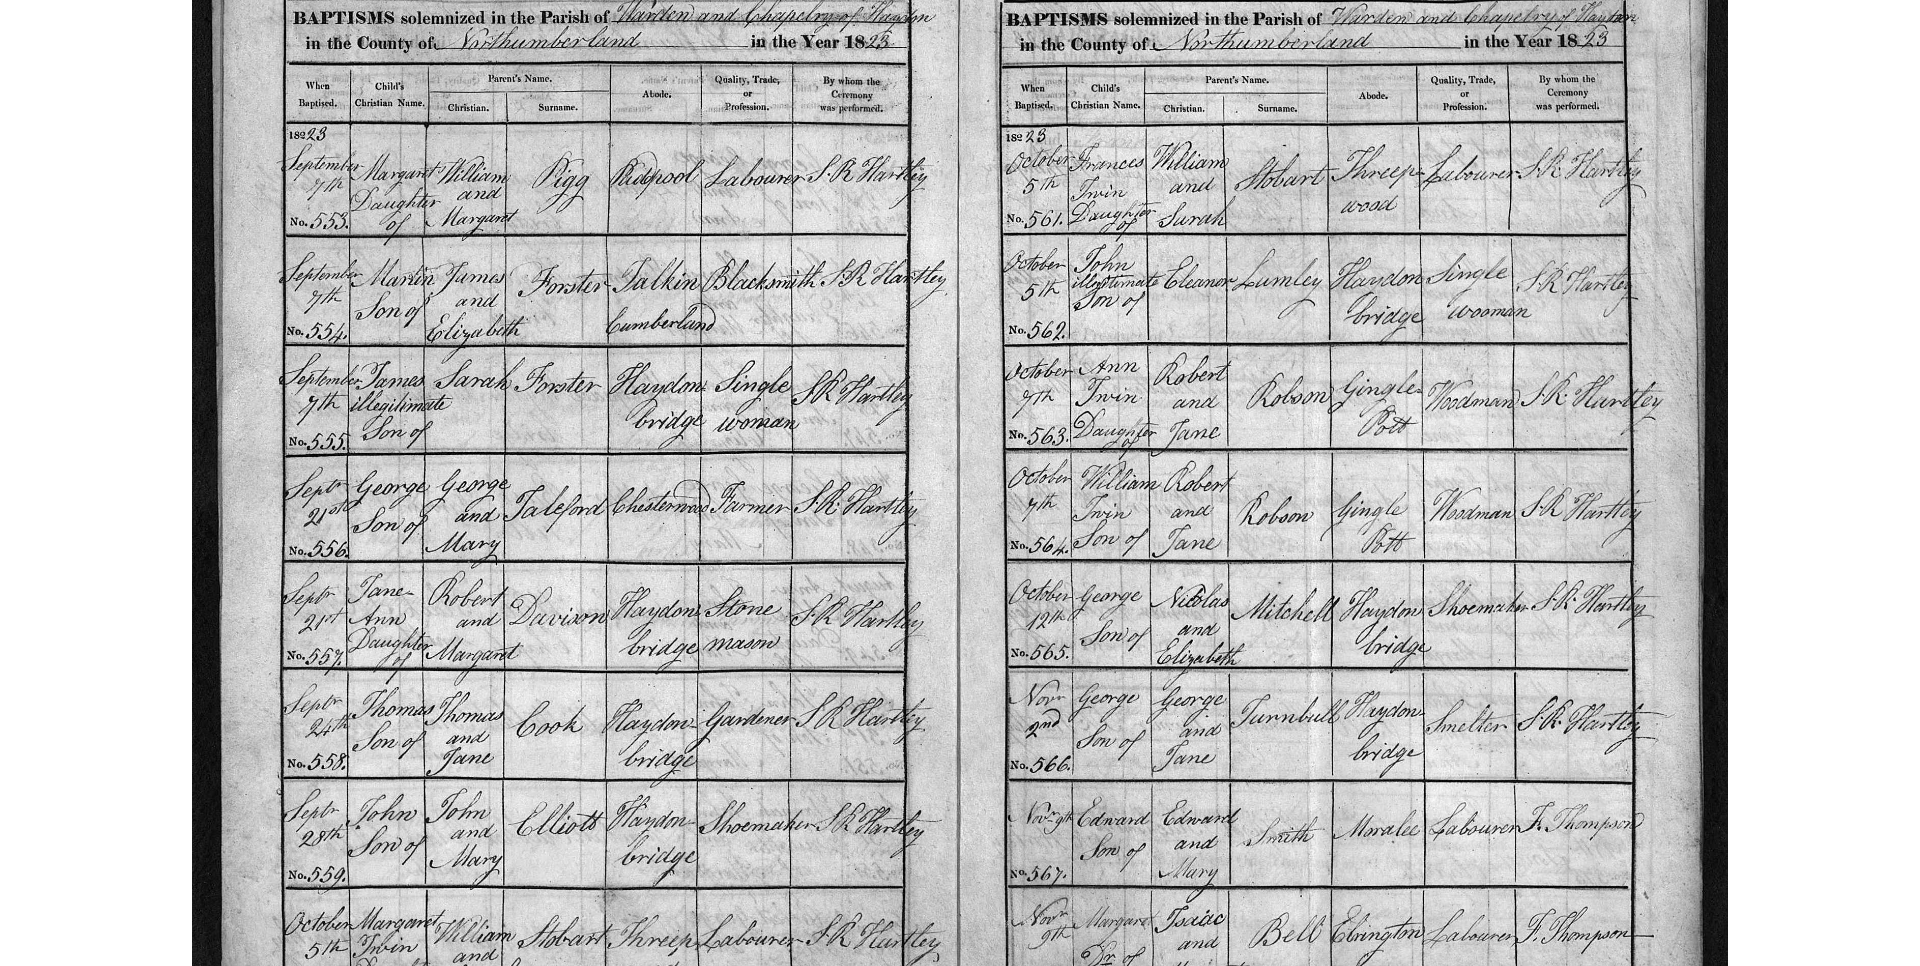 BAPTISMS solemnized in the Parish of Warden and Chapelry of Haydon
in the County of Northumberland in the Year 1823
When Baptised. Child's Christian Name. Parent's Name. Christian. Surname. Abode. Quality, Trade, or Profession. By whom the Ceremony was performed.
1823
September 7th No. 553. Margaret Daughter of William and Margaret Pigg Labourer S.R Hartley
September 7th No. 554. Martin Son of James and Elizabeth Forster Talkin Cumberland Blacksmith S.R Hartley
September 7th No. 555. James illegitimate Son of Sarah Forster Haydon-bridge Single woman S.R Hartley
Septr 21st No. 556. George Son of George and Mary Taleford Chesterwood Farmer S.R. Hartley
Septr 21st No. 557. Jane-Ann Daughter of Robert and Margaret Davison Haydon bridge Stone mason S.R Hartley
Septr 24th No. 558. Thomas Son of Thomas and Jane Cook Haydon-bridge Gardener S.R Hartley
Septr 28th No. 559. John Son of John and Mary Elliott Haydon-bridge Shoemaker S.R Hartley
October 5th Margaret Twin William and Stobart Threep Labourer S.R Hartley
BAPTISMS solemnized in the Parish of Warden and Chapelry of Haydon
in the County of Northumberland in the Year 1823
When Baptised. Child's Christian Name. Parent's Name. Christian. Surname. Abode. Quality, Trade, or Profession. By whom the Ceremony was performed.
1823
October 5th No. 561. Frances Twin Daughter of William and Sarah Stobart Threep-wood Labourer S.R. Hartley
October 5th No. 562. John illegitimate Son of Eleanor Lumley Haydon bridge Single wooman S.R Hartley
October 7th No. 563. Ann Twin Daughter of Robert and Jane Robson Gingle-Pott Woodman S.R. Hartley
October 7th No. 564. William Twin Son of Robert and Jane Robson Gingle Pott Woodman S.R Hartley
October 12th No. 565. George Son of Nicolas and Elizabeth Mitchell Haydon bridge Shoemaker S.R. Hartley
Novr 2nd No. 566. George Son of George and Jane Turnbull Haydon-bridge Smelter S.R. Hartley
Novr 9th No. 567. Edward Son of Edward and Mary Smith Moralee Labourer F. Thompson
Novr 9th Margaret Dr of Isaac and Bell Elrington Labourer F. Thompson